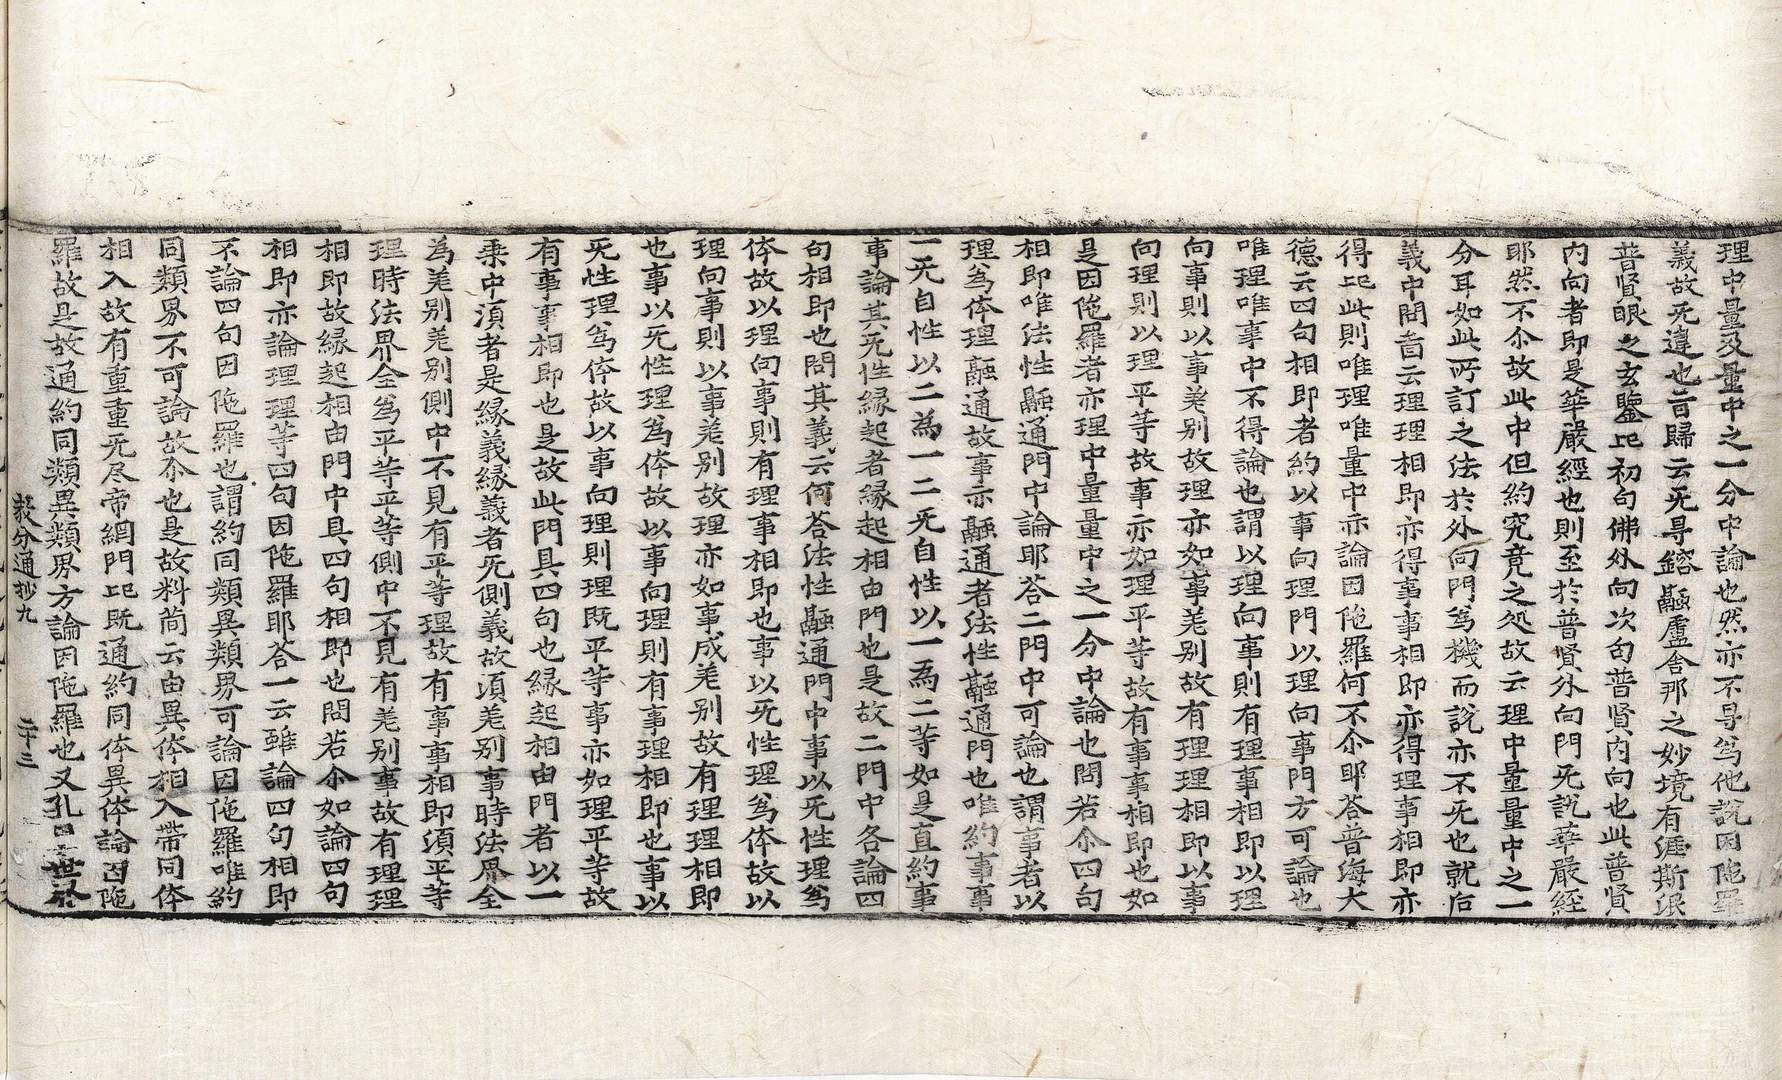 理中量及量中之一分中論也然亦不㝵爲他說因陁羅
義故旡違也言歸云旡㝵鎔融盧舍那之妙境有涯斯泯
普賢眼之玄鑒此初句佛外向次句普賢内向也此普賢
内向者即是華嚴經也則至於普賢外向門旡說華嚴經
耶然不尒故此中但約究竟之処故云理中量量中之一
分耳如此所訂之法於外向門爲機而說亦不旡也就后
義中問者云理理相即亦得事事相即亦得理事相即亦
得此則唯理唯量中亦論因陁羅何不尒耶答普海大
德云四句相即者約以事向理門以理向事門方可論也
唯理唯事中不得論也謂以理向事則有理事相即以理
向事則以事差别故理亦如事差别故有理理相即以事
向理則以理平等故事亦如理平等故有事事相即也如
是因陁羅者亦理中量量中之一分中論也問若尒四句
相即唯法性融通門中論耶答二門中可論也謂事者以
理爲体理融通故事亦融通者法性融通門也唯約事事
一旡自性以二為一二旡自性以一為二等如是直約事
事論其旡性緣起者緣起相由門也是故二門中各論四
句相即也問其義云何答法性融通門中事以旡性理爲
体故以理向事則有理事相即也事以旡性理爲体故以
理向事則以事差别故理亦如事成差别故有理理相即
也事以旡性理爲体故以事向理則有事理相即也事以
旡性理爲体故以事向理則理既平等事亦如理平等故
有事事相即也是故此門具四句也緣起相由門者以一
乗中湏者是緣義緣義者旡側義故湏差别事時法界全
為差别差别側中不見有平等理故有事事相即湏平等
理時法界全爲平等平等側中不見有差别事故有理理
相即故緣起相由門中具四句相即也問若尒如論四句
相即亦論理理等四句因陁羅耶答一云雖論四句相即
不論四句因陁羅也謂約同類異類界可論因陁羅唯約
同類界不可論故尒也是故料簡云由異体相入帶同体
相入故有重重旡尽帝網門此既通約同体異体論因陁
羅故是故通約同類異類界方論因陁羅也又孔目云世界
教分通抄九 二十三